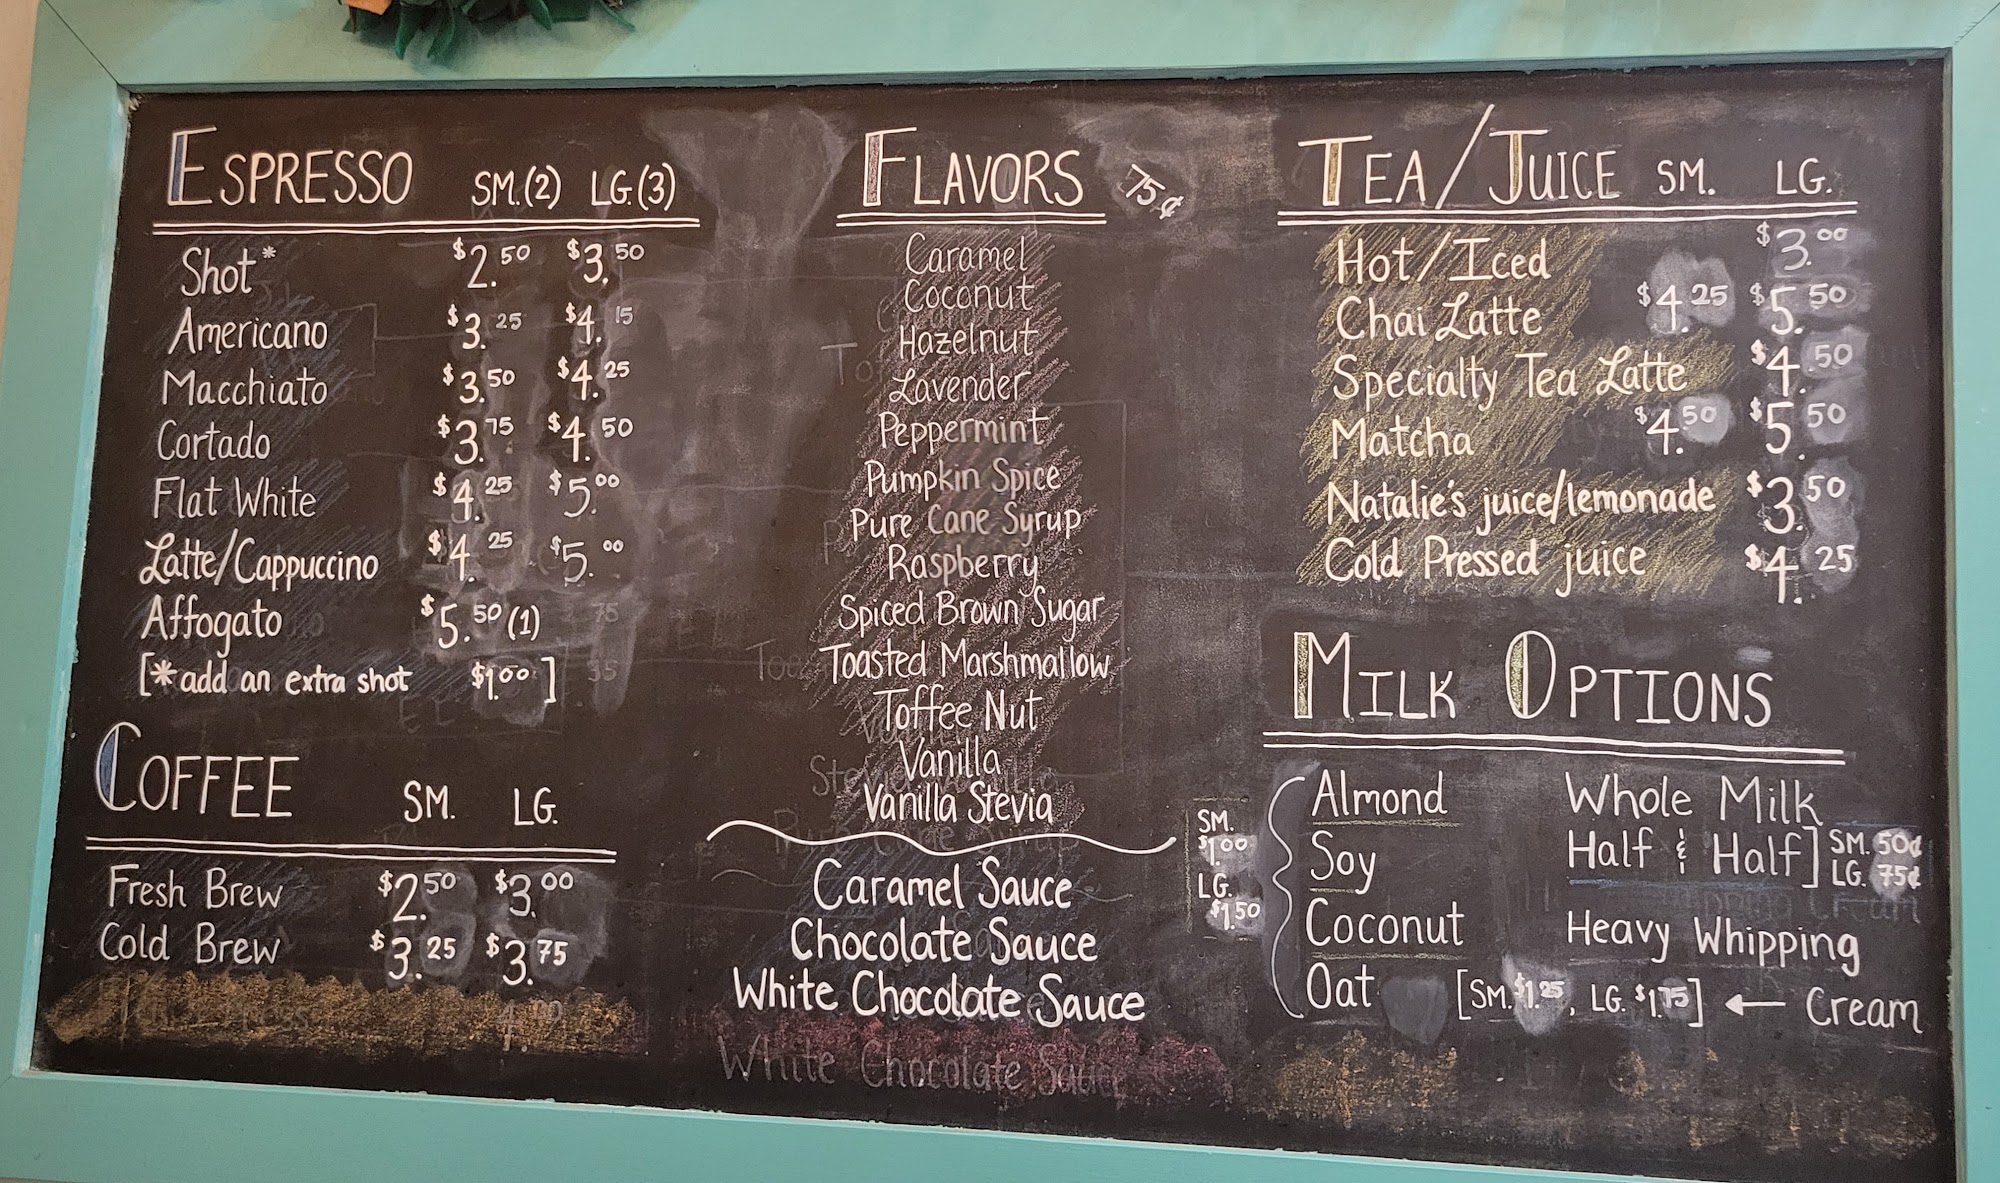 ESPRESSO SM.(2) LG.(3)
Shot* $2.50 $3.50
Americano $3.25 $4.15
Macchiato $3.50 $4.25
Cortado $3.75 $4.50
Flat White $4.25 $5.00
Latte/Cappuccino $4.25 $5.00
Affogato $5.50 (1)
[*add an extra shot $1.00]
COFFEE SM. LG.
Fresh Brew $2.50 $3.00
Cold Brew $3.25 $3.75
FLAVORS 75¢
Caramel
Coconut
Hazelnut
Lavender
Peppermint
Pumpkin Spice
Pure Cane Syrup
Raspberry
Spiced Brown Sugar
Toasted Marshmallow
Toffee Nut
Vanilla
Vanilla Stevia
Caramel Sauce
Chocolate Sauce
White Chocolate Sauce
White Chocolate Sauce
TEA/JUICE SM. LG.
Hot/Iced $3.00
Chai Latte $4.25 $5.50
Specialty Tea Latte $4.50
Matcha $4.50 $5.50
Natalie's juice/lemonade $3.50
Cold Pressed juice $4.25
MILK OPTIONS
SM. $1.00
LG. $1.50
Almond
Soy
Coconut
Oat
Whole Milk
Half & Half] SM. 50¢ LG. 75¢
Heavy Whipping
[SM. $1.25, LG. $1.75] ← Cream